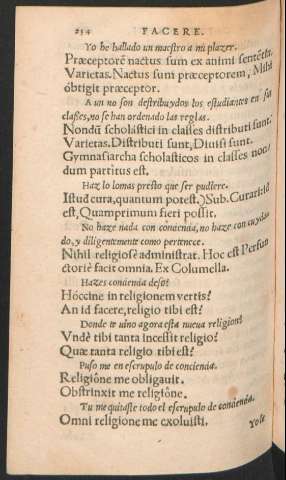 234 FACERE.
Yo he hallado un maestro a mi plazer.
Præceptorē nactus sum ex animi sentētia.
Varietas. Nactus sum præceptorem, Mihi
óbtigit præceptor.
A un no son destribuydos los estudiantes en sus
classes, no se han ordenado las reglas.
Nondū scholastici in classes distributi sunt.
Varietas. Distributi sunt, Diuisi sunt.
Gymnasiarcha scholasticos in classes non
dum partitus est.
Haz lo lo mas presto que ser pudiere.
Istud cura, quantum potest.) Sub. Curari: id
est, Quamprimum fieri possit.
No haze nada con conciencia, no haze con cuyda
do, y diligentemente como pertenece.
Nihil religiosè administrat. Hoc est Perfun
ctoriè facit omnia. Ex Columella.
Hazes conciencia desto?
Hóccine in religionem vertis?
An id facere, religio tibi est?
Donde te uino agora esta nueua religion?
Vndè tibi tanta incessit religio?
Quæ tanta religio tibi est?
Puso me en escrupulo de conciencia.
Religiône me obligauit.
Obstrinxit me religiône.
Tu me quitaste todo el escrupulo de conciencia.
Omni religione me exoluisti.
Yo le